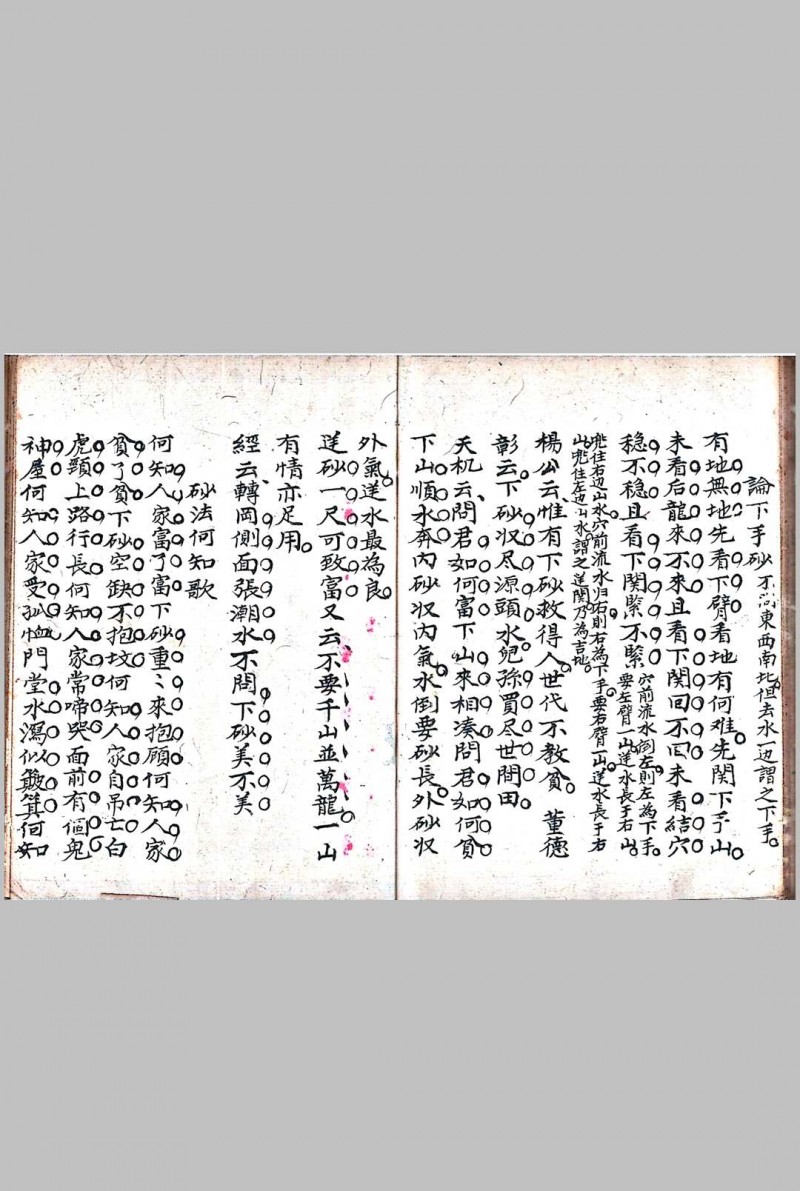 論下手砂不論東西南北但去水一边謂之下手
有地無地先看下臂看地有何难先関下手山
未看后龍來不來且看下関回不回未看結穴
稳不稳且看下関緊不緊穴前流水倒左則左為下手要左臂一山逆水長于右山
兠住右边山水穴前流水归右則右為下手要右臂一山逆水長于右
山兠住左边山水謂之逆関乃為吉地
楊公云惟有下砂救得人世代不教貧　董德
彰云下砂収尽源頭水兒孫買尽世間田
天机云問君如何富下山來相凑問君如何貧
下山順水奔內砂収內氣水倒要砂長外砂収
外氣逆水最為良
逆砂一尺可致富又云不要千山並萬龍一山
有情亦足用
經云轉岡側面張潮水不問下砂美不美
砂法何知歌
何知人家富了富下砂重〻來抱顧何知人家
貧了貧下砂空缺不抱坟何知人家自吊亡白
虎頸上路行長何知人家常啼哭面前有個鬼
神屋何知人家受孤恤門堂水瀉似簸箕何知